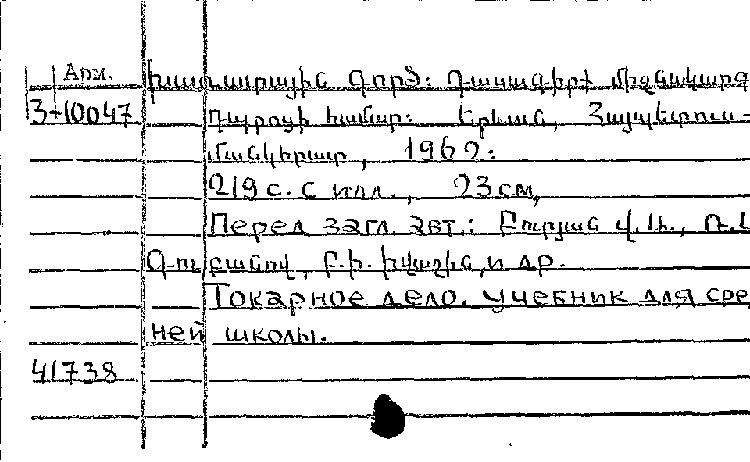 Арм.
Խառատային գործ: Դասագիրք միջնակարգ
3+10047 դպրոցի համար: Երևան, Հայպետուս-
մանկհրատ, 1962:
219 с. с илл., 23 см,
Перед загл. авт.: Բուրյան Վ.
և др.
Токарное дело. Учебник для сре
ней школы.
41738